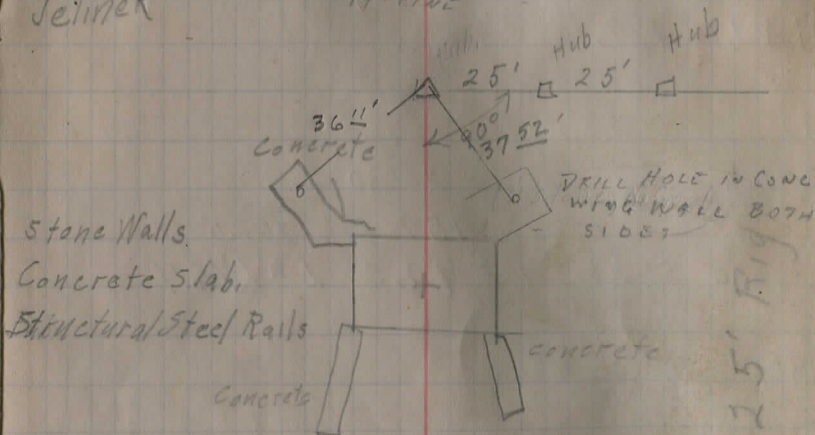 Jelinek
Hub
Hub
25'
25'
36 11'
90°
37 52'
Concrete
DRILL HOLE IN CONC
WING WALL BOTH
SIDES
Stone Walls.
Concrete Slab.
Structural Steel Rails
Concrete
Concrete
25' Rig